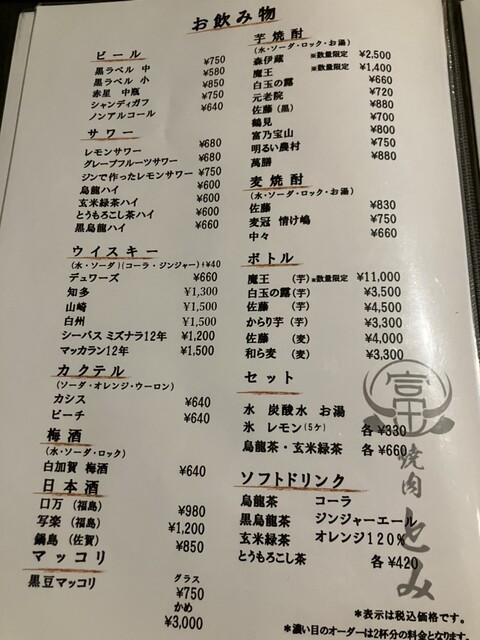 お飲み物
ビール
黒ラベル 中 ¥750
黒ラベル 小 ¥580
赤星 中瓶 ¥850
シャンディガフ ¥750
ノンアルコール ¥640
サワー
レモンサワー ¥680
グレープフルーツサワー ¥680
ジンで作ったレモンサワー ¥750
烏龍ハイ ¥600
玄米緑茶ハイ ¥600
とうもろこし茶ハイ ¥600
黒烏龍ハイ ¥660
ウイスキー
(水・ソーダ)(コーラ・ジンジャー)+¥40
デュワーズ ¥660
知多 ¥1,300
山崎 ¥1,500
白州 ¥1,500
シーバス ミズナラ12年 ¥1,200
マッカラン12年 ¥1,500
カクテル
(ソーダ・オレンジ・ウーロン)
カシス ¥640
ピーチ ¥640
梅酒
(水・ソーダ・ロック)
白加賀 梅酒 ¥640
日本酒
口万 (福島) ¥980
写楽 (福島) ¥1,200
鍋島 (佐賀) ¥850
マッコリ
黒豆マッコリ グラス ¥750
かめ ¥3,000
芋焼酎
(水・ソーダ・ロック・お湯)
森伊蔵 ※数量限定 ¥2,500
魔王 ※数量限定 ¥1,400
白玉の露 ¥660
元老院 ¥720
佐藤(黒) ¥880
鶴見 ¥700
富乃宝山 ¥800
明るい農村 ¥750
萬膳 ¥880
麦焼酎
(水・ソーダ・ロック・お湯)
佐藤 ¥830
麦冠 情け嶋 ¥750
中々 ¥660
ボトル
魔王 (芋)※数量限定 ¥11,000
白玉の露(芋) ¥3,500
佐藤 (芋) ¥4,500
からり芋(芋) ¥3,300
佐藤 (麦) ¥4,000
和ら麦 (麦) ¥3,300
セット
水 炭酸水 お湯
氷 レモン(5ケ) 各 ¥330
烏龍茶・玄米緑茶 各 ¥660
ソフトドリンク
烏龍茶 コーラ
黒烏龍茶 ジンジャーエール
玄米緑茶 オレンジ120%
とうもろこし茶 各 ¥420
富
焼肉 とみ
*表示は税込価格です。
*濃い目のオーダーは2杯分の料金となります。